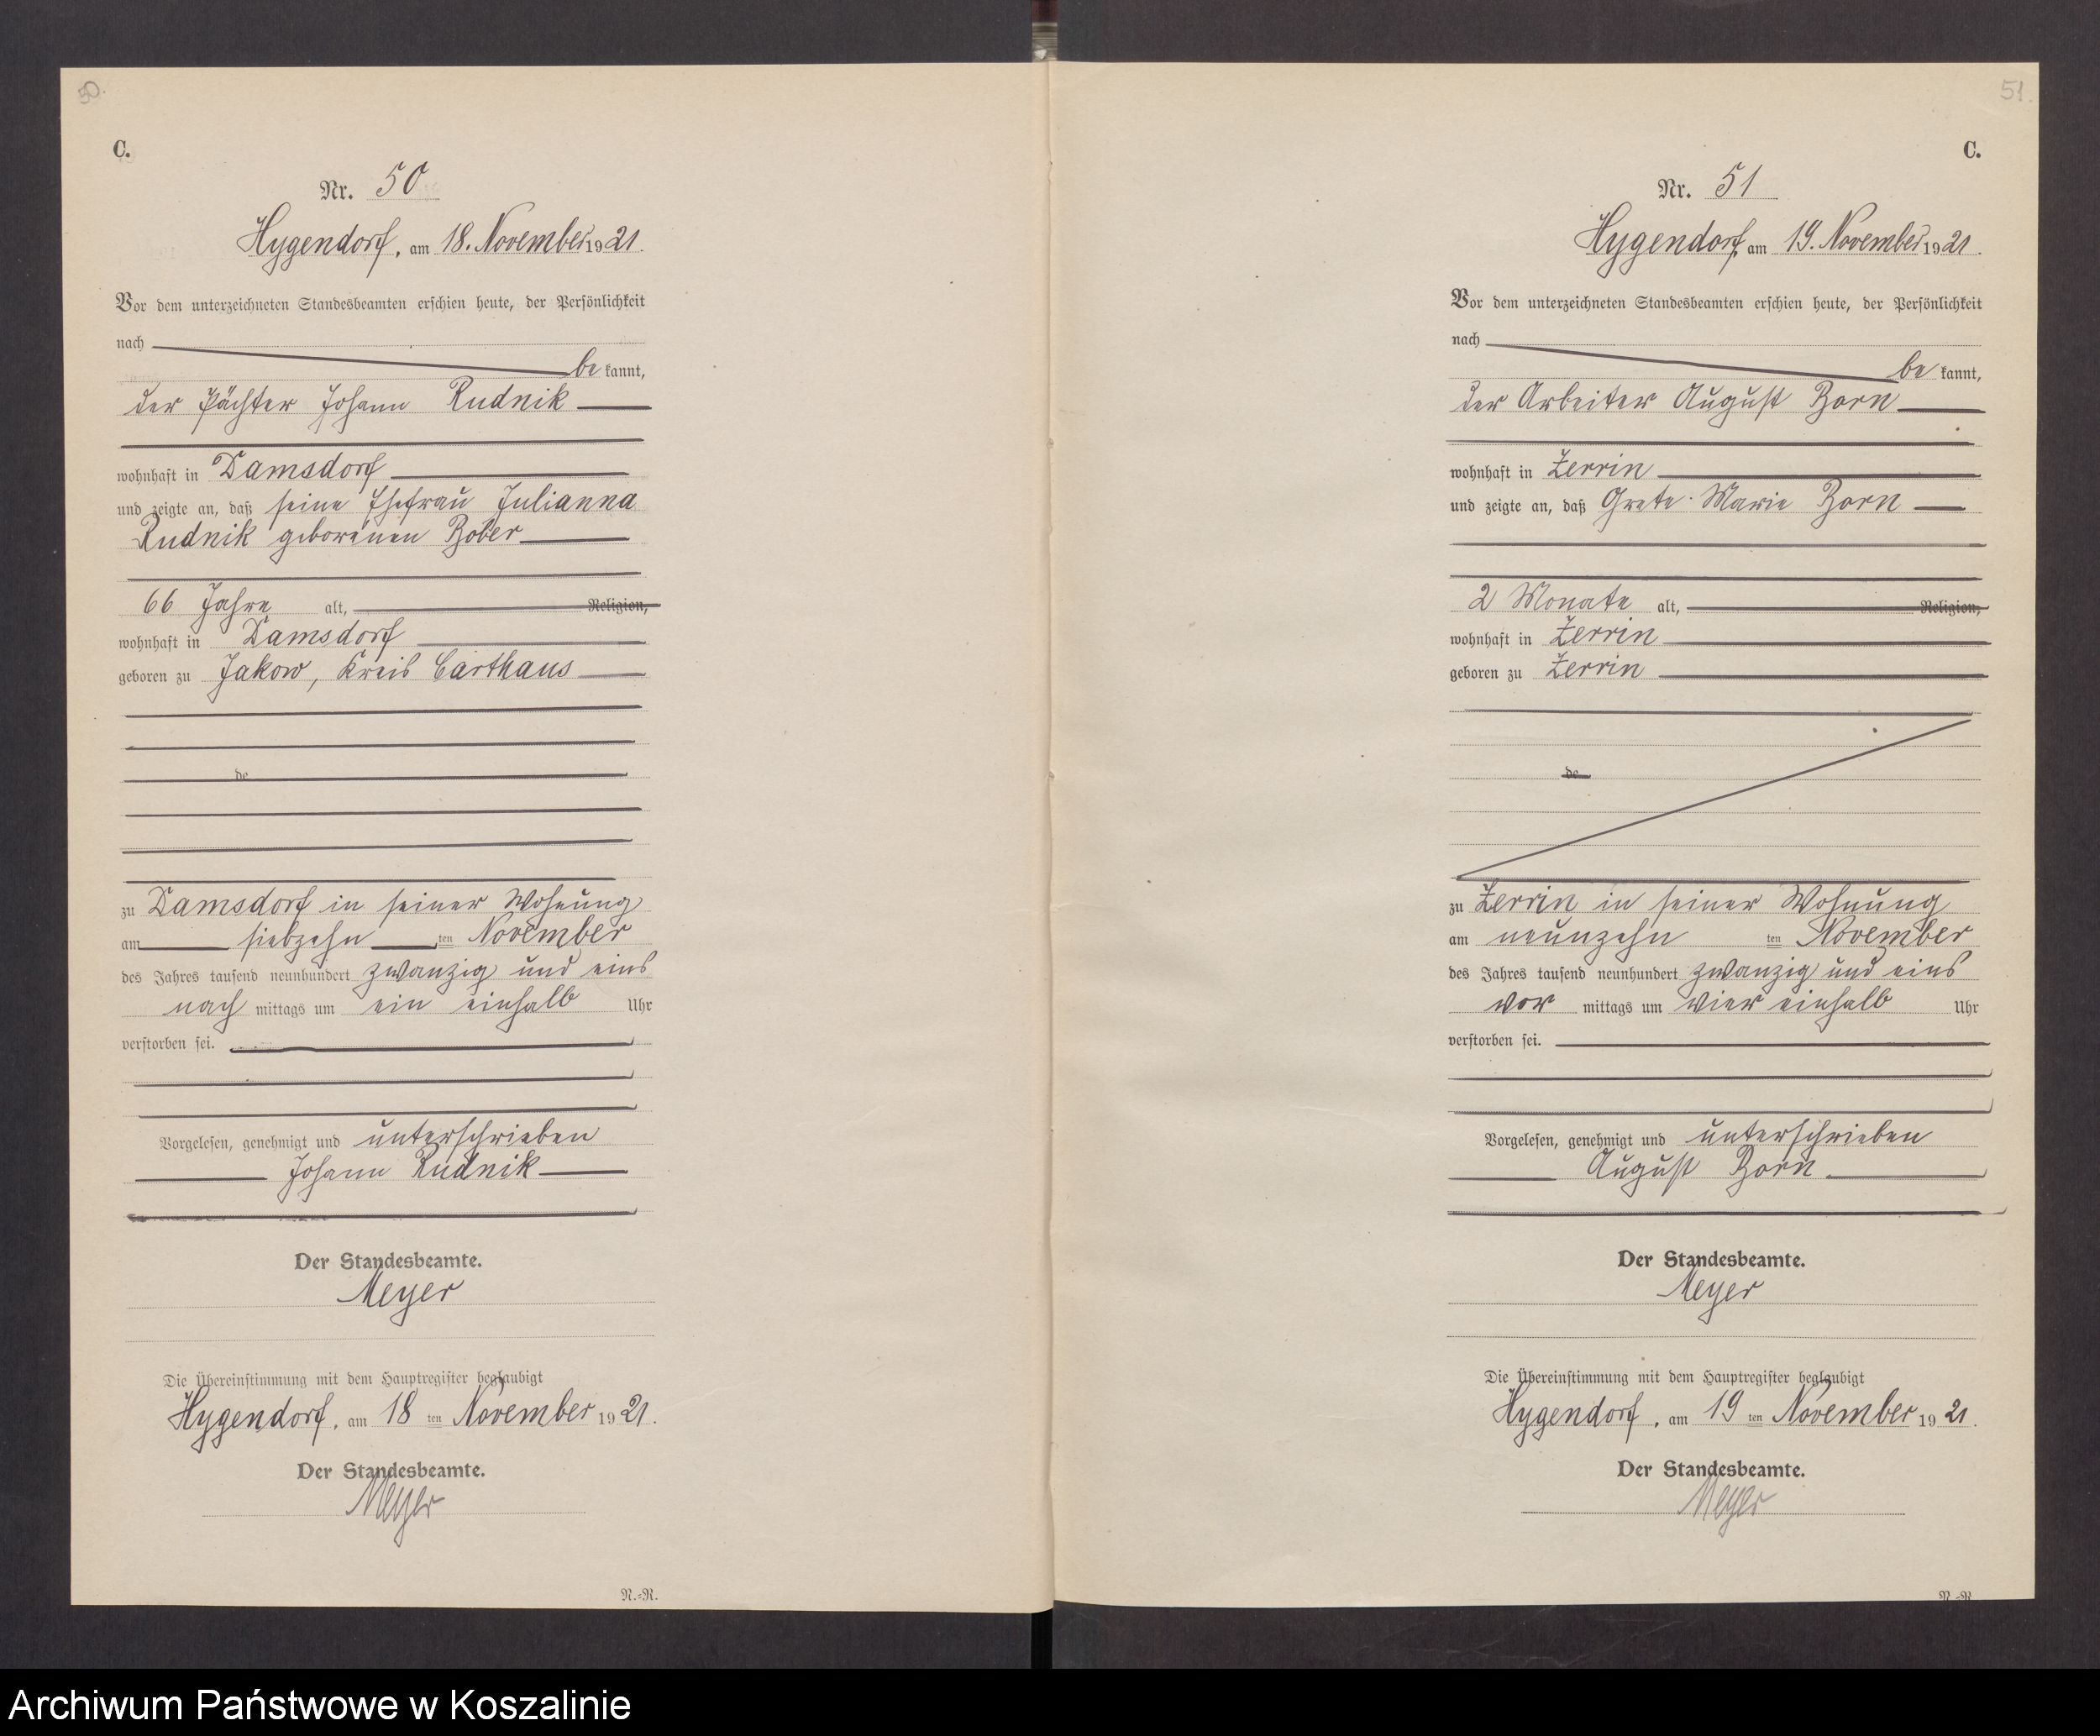 50.
C.
Nr. 50
Hygendorf, am 18. November 1921.
Vor dem unterzeichneten Standesbeamten erschien heute, der Persönlichkeit
nach
be kannt,
der Pächter Johann Rudnik
wohnhaft in Damsdorf
und zeigte an, daß seine Ehefrau Julianna
Rudnik geborenen Bober
66 Jahre alt, Religion,
wohnhaft in Damsdorf
geboren zu Jakow, Kreis Carthaus
de
zu Damsdorf in seiner Wohnung
am siebzehn ten November
des Jahres tausend neunhundert zwanzig und eins
nach mittags um ein einhalb Uhr
verstorben sei.
Vorgelesen, genehmigt und unterschrieben
Johann Rudnik
Der Standesbeamte.
Meyer
Die Übereinstimmung mit dem Hauptregister beglaubigt
Hygendorf, am 18 ten November 1921.
Der Standesbeamte.
Meyer
N.-R.
51.
C.
Nr. 51
Hygendorf, am 19. November 1921.
Vor dem unterzeichneten Standesbeamten erschien heute, der Persönlichkeit
nach
be kannt,
der Arbeiter August Born
wohnhaft in Zerrin
und zeigte an, daß Grete Marie Born
2 Monate alt, Religion,
wohnhaft in Zerrin
geboren zu Zerrin
de
zu Zerrin in seiner Wohnung
am neunzehn ten November
des Jahres tausend neunhundert zwanzig und eins
vor mittags um vier einhalb Uhr
verstorben sei.
Vorgelesen, genehmigt und unterschrieben
August Born
Der Standesbeamte.
Meyer
Die Übereinstimmung mit dem Hauptregister beglaubigt
Hygendorf, am 19 ten November 1921.
Der Standesbeamte.
Meyer
N.-R.
Archiwum Państwowe w Koszalinie